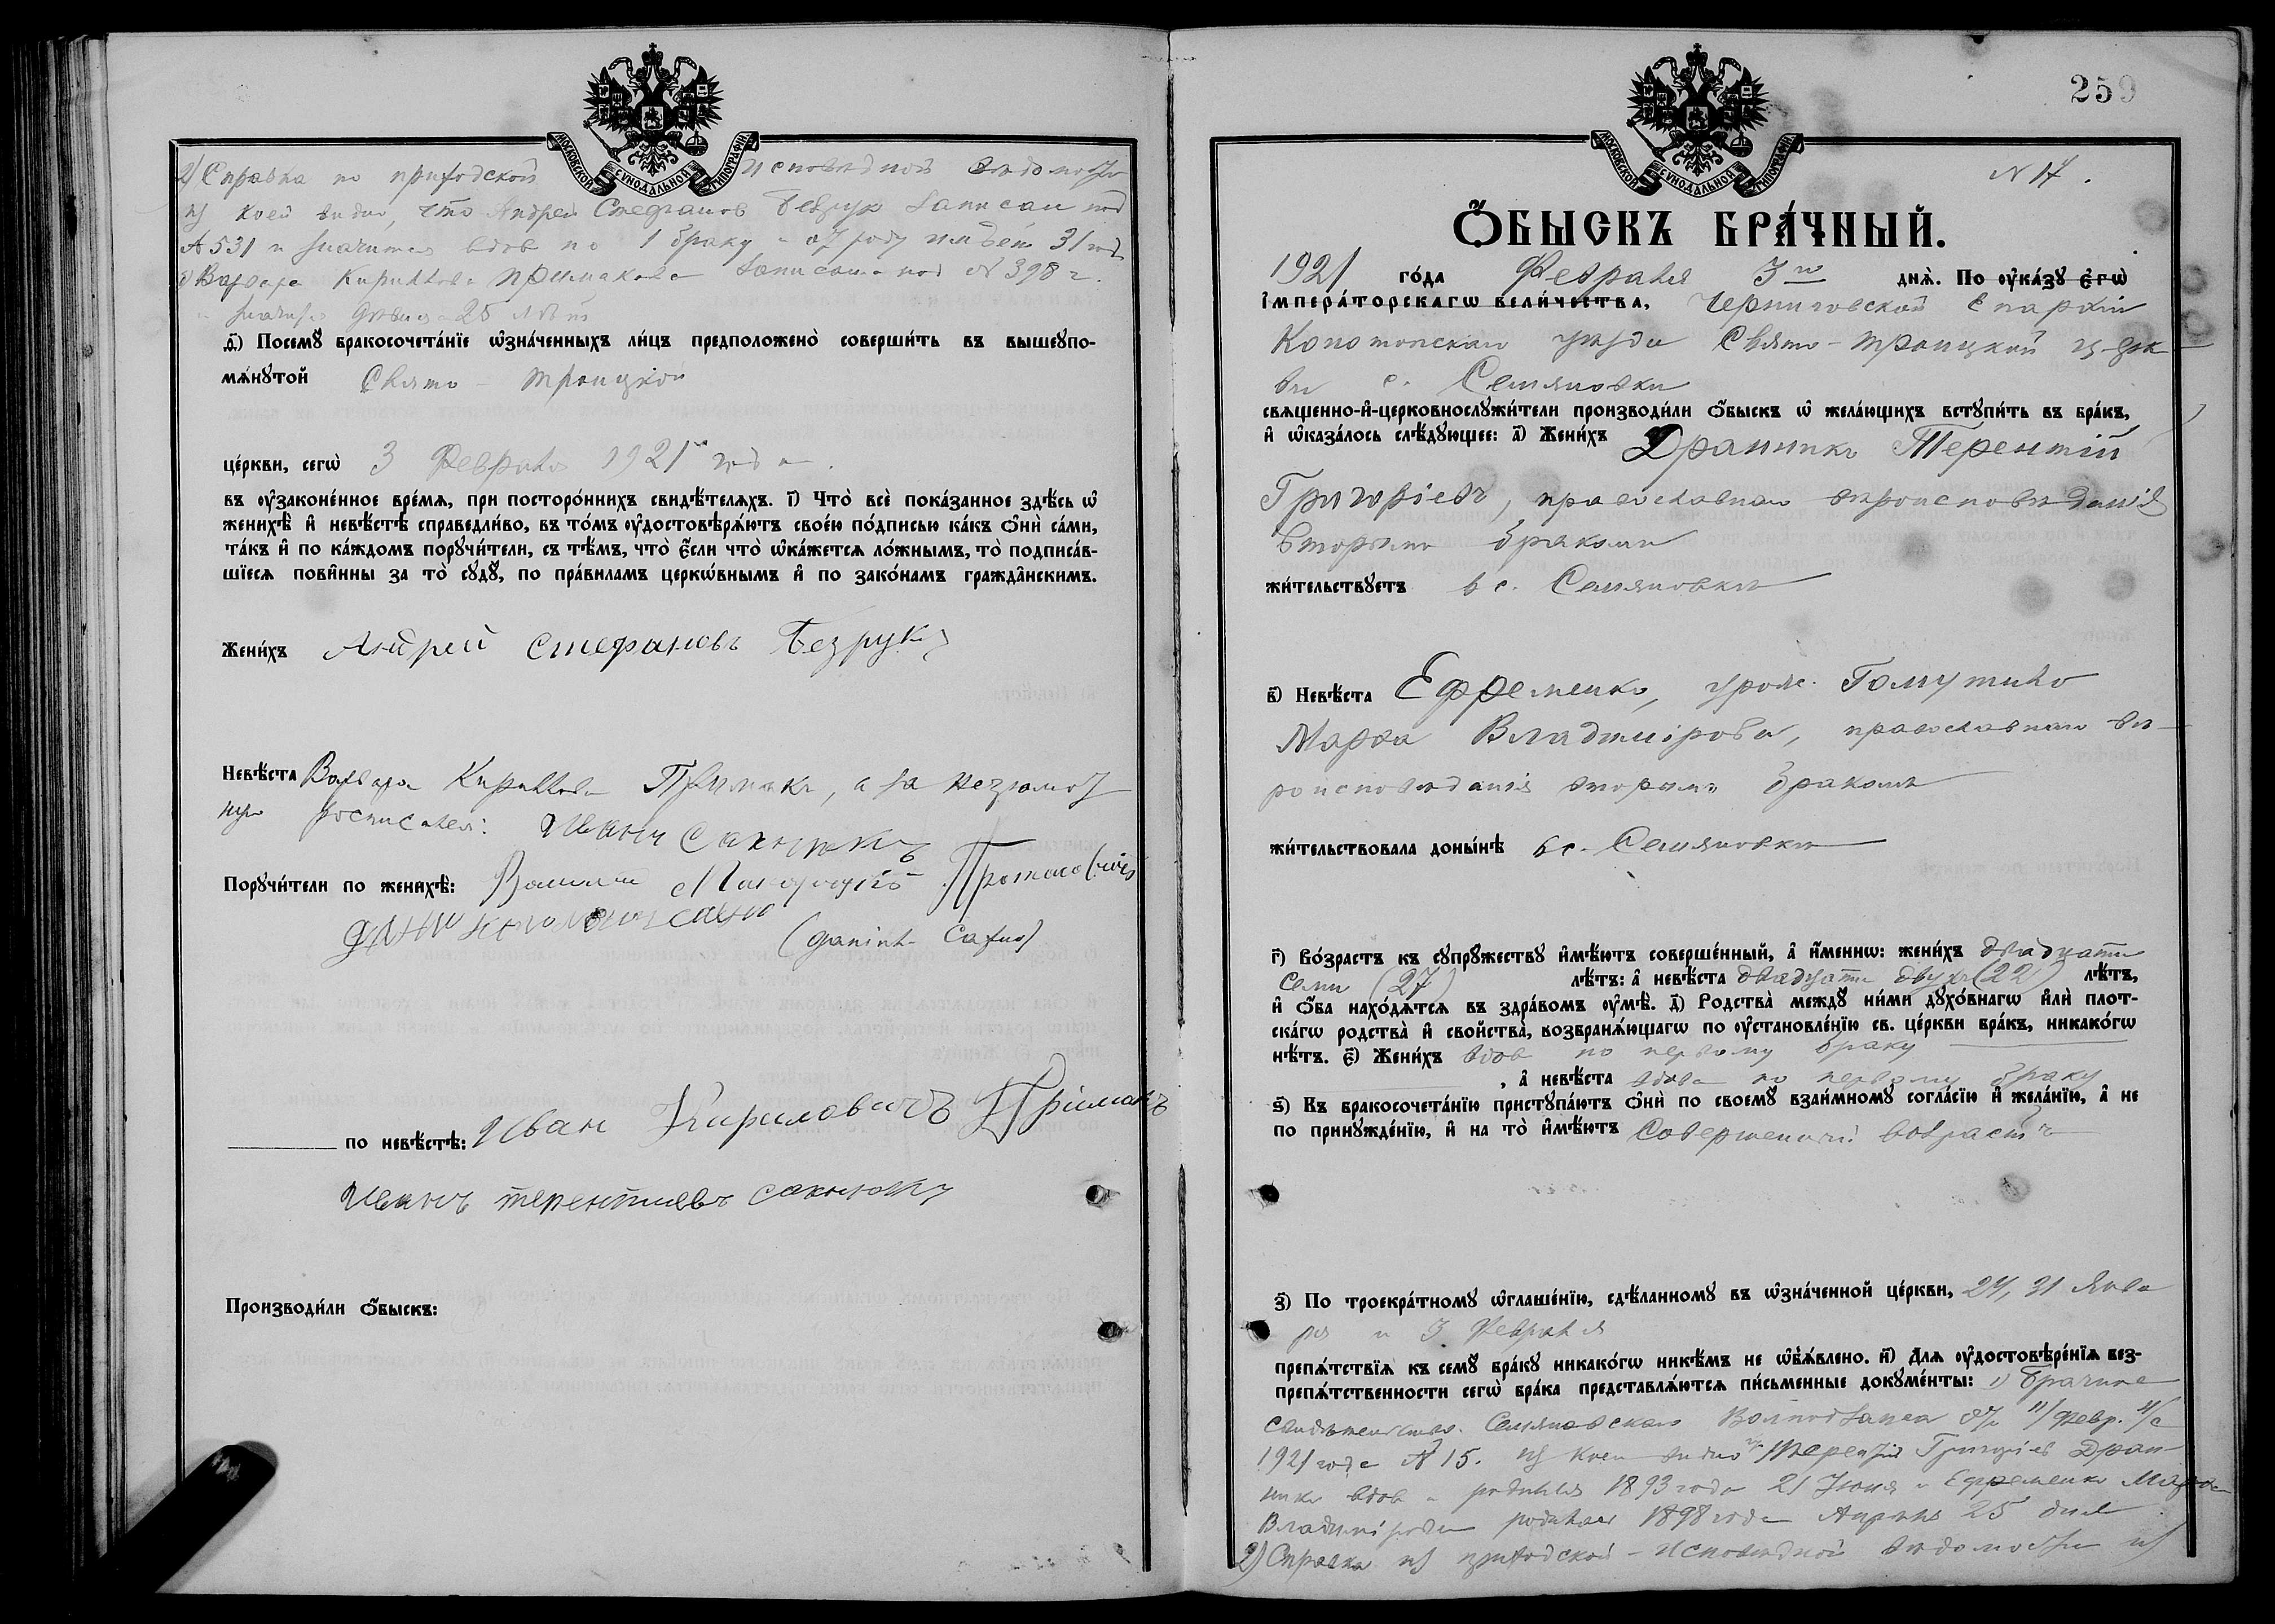 МОСКОВСКОЙ СѴНОДАЛЬНОЙ ТИПОГРАФІИ
2) Справка по приходской исповѣдной вѣдомости
из коей видно, что Андрей Стефанов Безрук записан под
№ 531 и значится вдов по 1 браку и от роду имѣет 31 год
Варвара Кириллова Примакова записана под № 398 г.
и значится дѣвица 25 лѣт
д҃) Посемꙋ̀ бракосочета́нїе ѡ҆зна́ченныхъ ли́цъ предположено̀ соверши́ть въ вышеꙋпо-
мѧ́нꙋтой Свято - Троицкой
це́ркви, сегѡ̀ 3 Февраля 1921 года.
въ ᲂу҆законе́нное вре́мѧ, при посторо́ннихъ свидѣ́телѧхъ. і҃) Что̀ всѐ пока́занное здѣ́сь ѡ҆
женихѣ̀ и҆ невѣ́стѣ справедли́во, въ то́мъ ᲂу҆достовѣрѧ́ютъ свое́ю по́дписью ка́къ ѻ҆нѝ са́ми,
та́къ и҆ по ка́ждомъ порꙋчи́тели, съ тѣ́мъ, что̀ є҆́сли что̀ ѡ҆ка́жетсѧ ло́жнымъ, то̀ подписа́в-
шїесѧ пови́нны за то̀ сꙋдꙋ̀, по пра́виламъ церкѡ́внымъ и҆ по зако́намъ гражда̂нскимъ.
Жени́хъ Андрей Стефановъ Безрукъ
Невѣ́ста Варвара Кириллова Примакъ, а за неграмот
ную росписался: Иванъ Сахнюкъ
Порꙋчи́тели по женихѣ̀:
(Даниил Сахно)
по невѣ́стѣ: Иван Кириловичъ Прiмакъ
Иванъ терентиевъ сахнюкъ
Производи́ли ѻ҆́быскъ:
259
МОСКОВСКОЙ СѴНОДАЛЬНОЙ ТИПОГРАФІИ
N 17.
Ѻ҆́БЫСКЪ БРА́ЧНЫЙ.
1921 го́да Февраля 3го днѧ̀. По ᲂу҆ка́зꙋ є҆гѡ̀
і҆мпера́торскагѡ вели́чества, Черниговской Епархіи
Конотопскаго уѣзда Свято - Троицкой церк-
ви с. Семяновки
свѧщенно-и҆-церковнослꙋжи́тели производи́ли ѻ҆́быскъ ѡ҆ жела́ющихъ встꙋпи́ть въ бра́къ,
и҆ ѡ҆каза́лось слѣ́дꙋющее: а҃) Жени́хъ Дранникъ Терентій
Григоріевъ, православнаго вѣроисповѣданія
вторымъ бракомъ
жи́тельствꙋетъ в с. Семяновкѣ
в҃) Невѣ́ста Ефременко, урож. Гомутило
Марѳа Владиміровна, православнаго вѣ-
роисповѣданія вторымъ бракомъ
жи́тельствовала доны́нѣ в с. Семяновкѣ
г҃) Во́зрастъ къ сꙋпрꙋ́жествꙋ и҆мѣ́ютъ соверше́нный, а҆ и҆́меннѡ: жени́хъ двадцати
семи (27) лѣ́тъ: а҆ невѣ́ста двадцати двухъ (22) лѣ́тъ,
и҆ ѻ҆́ба нахо́дѧтсѧ въ здра́вомъ ᲂу҆мѣ̀. д҃) Родства̀ междꙋ̀ ни́ми дꙋхо́внагѡ и҆лѝ плот-
ска́гѡ родства̀ и҆ свойства̀, возбранѧ́ющагѡ по ᲂу҆становле́нїю св. це́ркви бра́къ, никако́гѡ
нѣ́тъ. є҃) Жени́хъ вдов по первому браку
, а҆ невѣ́ста вдова по первому браку
ѕ҃) Къ бракосочета́нїю пристꙋпа́ютъ ѻ҆нѝ по своемꙋ̀ взаи́мномꙋ согла́сїю и҆ жела́нїю, а҆ не
по принꙋжде́нїю, и҆ на то̀ и҆мѣ́ютъ совершенный возрастъ
з҃) По троекра́тномꙋ ѡ҆глаше́нїю, сдѣ́ланномꙋ въ ѡ҆зна́ченной це́ркви, 24, 31 Янва
ря и 3 Февраля
препѧ́тствїѧ къ семꙋ̀ бра́кꙋ никако́гѡ никѣ́мъ не ѡ҆б̾ѧ́влено. и҃) Длѧ ᲂу҆достовѣре́нїѧ без-
препѧ́тственности сегѡ̀ бра́ка представлѧ́ютсѧ пи́сьменные докꙋме́нты: 1) Брачное
свидѣтельство Семяновскаго Волподзагса от 11/Февр. с/с
1921 года № 15. из коей видно что Терентій Григоріев Дран
никъ вдов и родился 1893 года 21 Июня и Ефременко Марѳа
Владимірова родилась 1898 года Апрѣля 25 дня
2) Справка из приходской - исповѣдной вѣдомости из